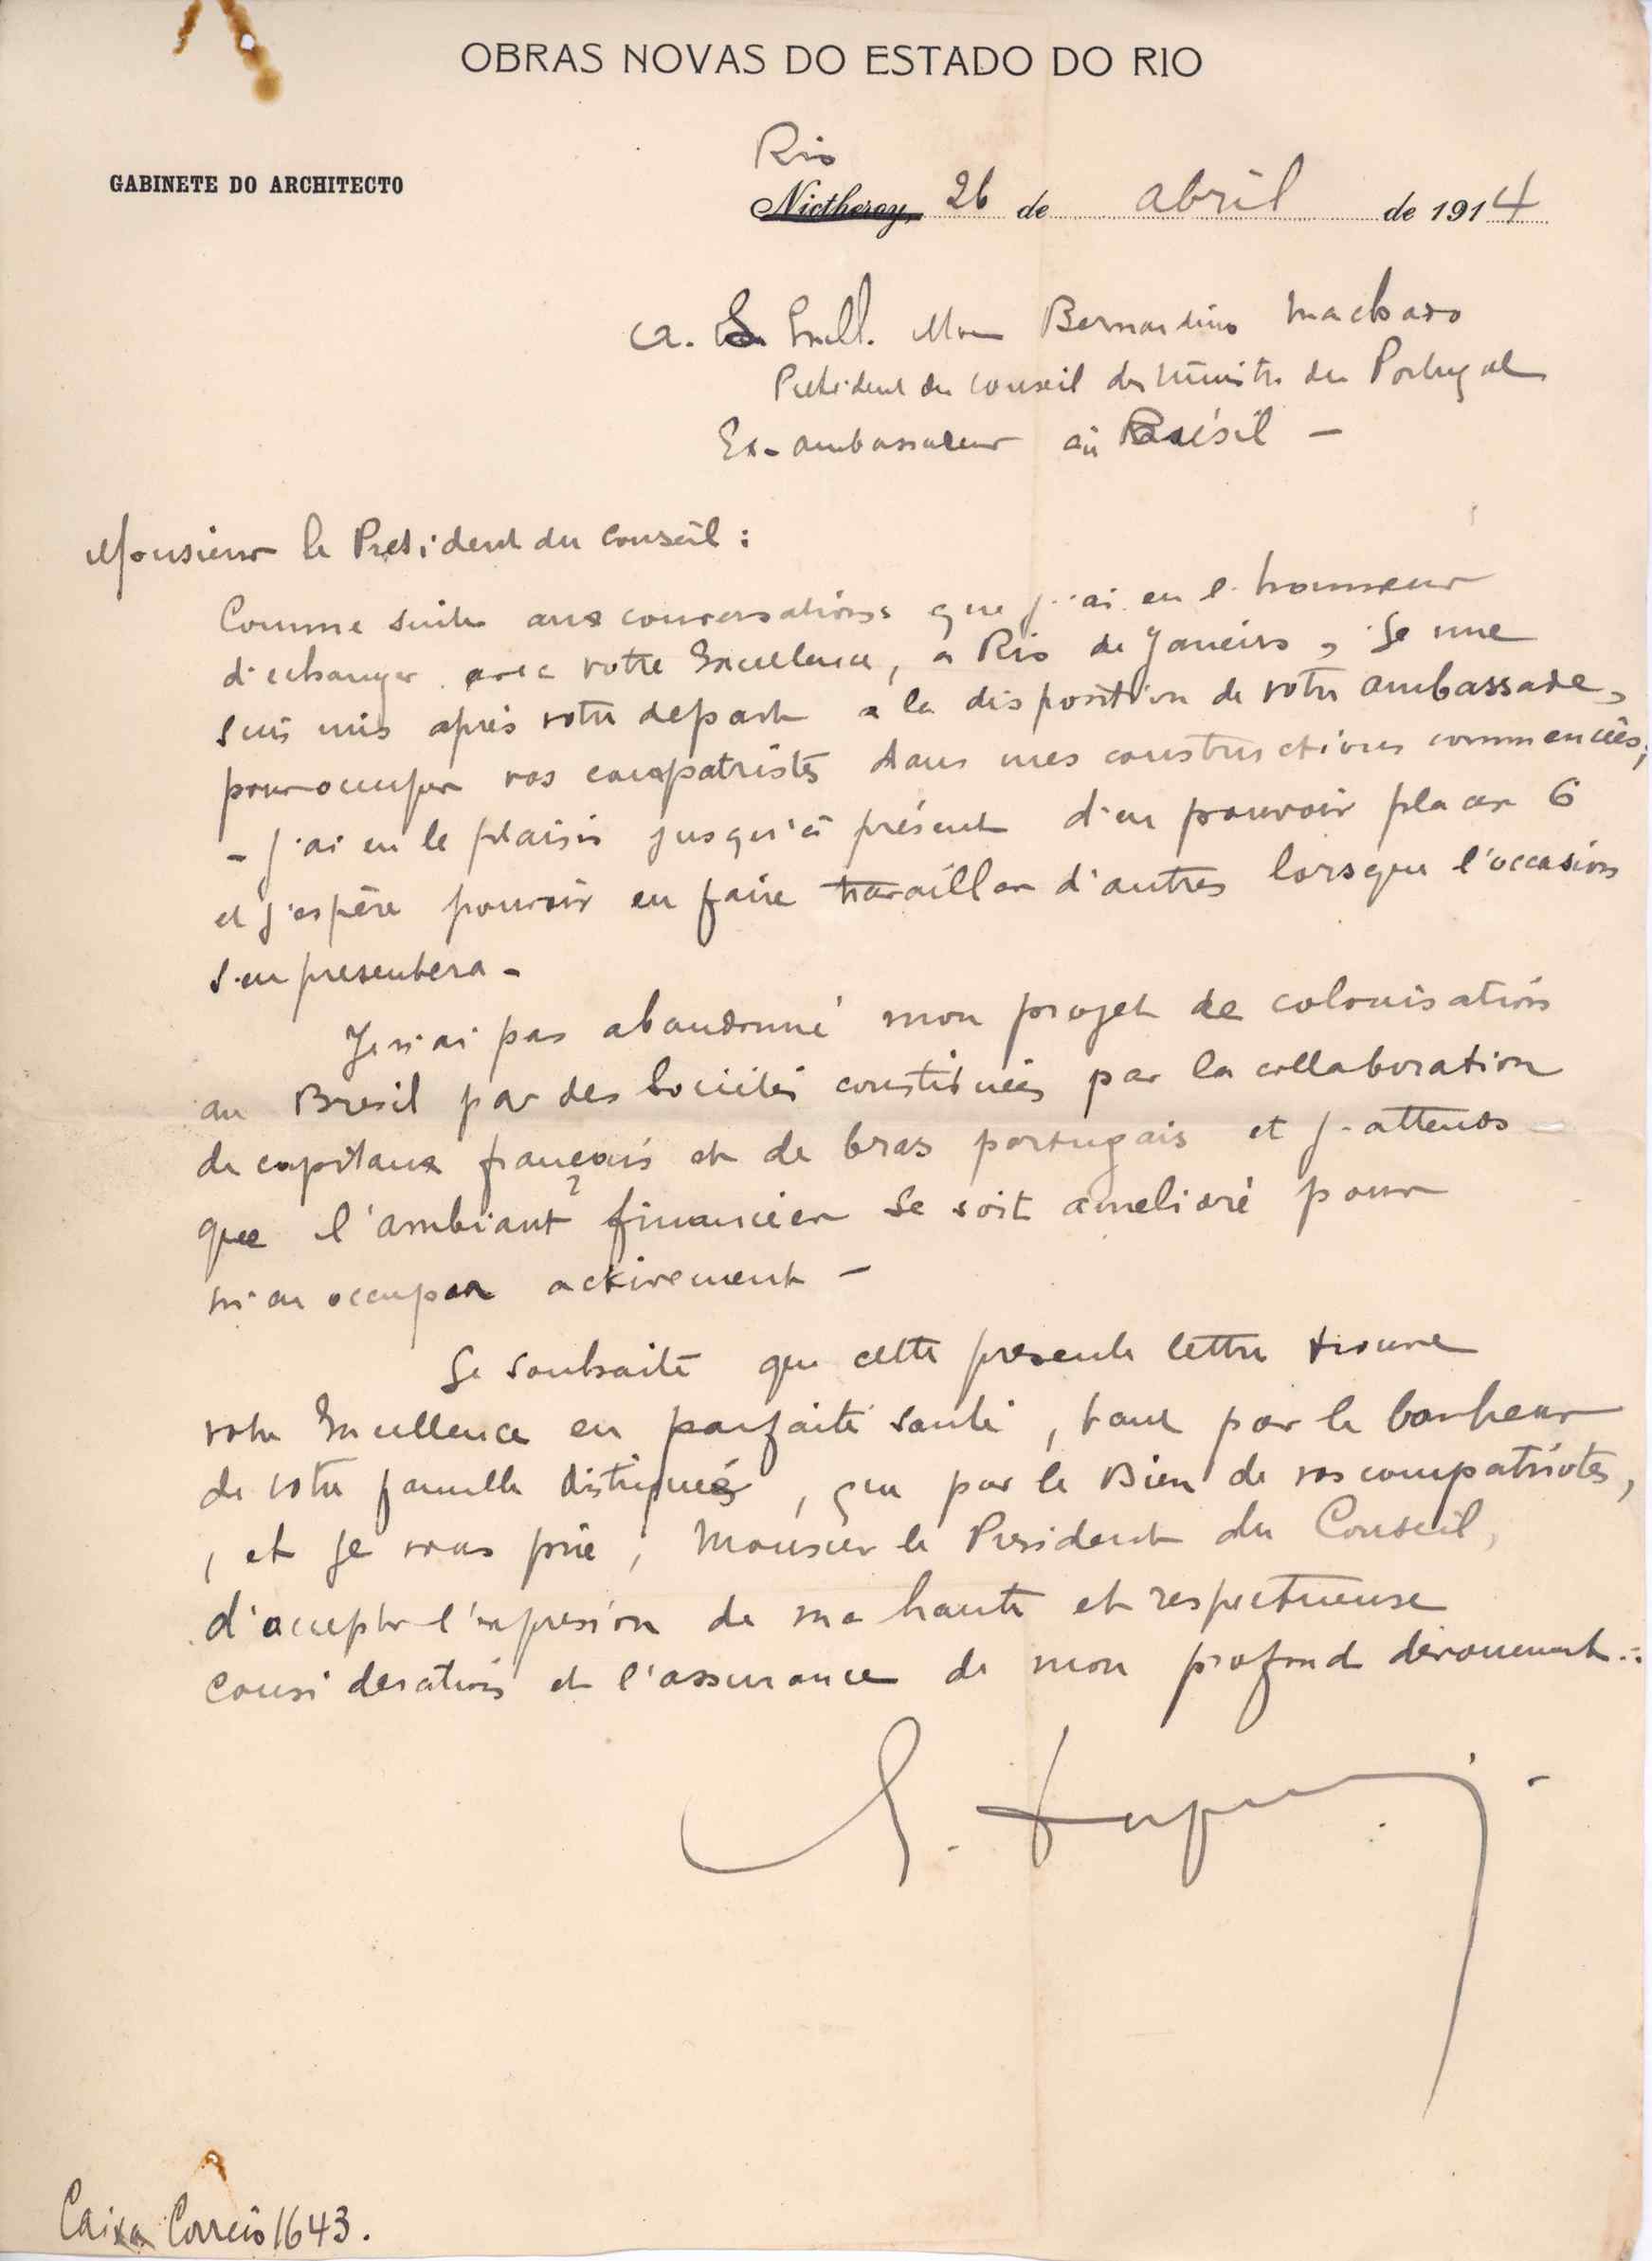 OBRAS NOVAS DO ESTADO DO RIO
GABINETE DO ARCHITECTO
Rio
Nictheroy, 26 de abril de 1914
a. S. Exell. Mon Bernardino Machado
President du conseil des Ministres du Portugal
Ex-ambassadeur au Brésil –
Monsieur le President du Conseil :
Comme suite aux conversations que j'ai eu l'honneur
d'echanger avec votre Excellence, a Rio de Janeiro, je me
suis mis après votre depart a la disposition de votre ambassade,
pour occuper vos compatriotes dans mes constructions commencées,
– j'ai eu le plaisir jusqu'à présent d'en pouvoir placer 6
et j'espère pouvoir en faire travailler d'autres lorsque l'occasion
s'en presentera –
Je n'ai pas abandonné mon projet de colonisation
au Bresil par des Sociétés constituées par la collaboration
de capitaux français et de bras portugais et j'attends
que l'ambiant financier se soit amelioré pour
m'en occuper activement –
Je souhaite que cette presente lettre trouve
votre Excellence en parfaite santé, tant par le bonheur
de votre famille distinguée, que par le Bien de vos compatriotes,
, et je vous prie, Monsieur le President du Conseil,
d'accepter l'expresion de ma haute et respectueuse
consideration et l'assurance de mon profond dévouement.
Caixa Correio 1643.